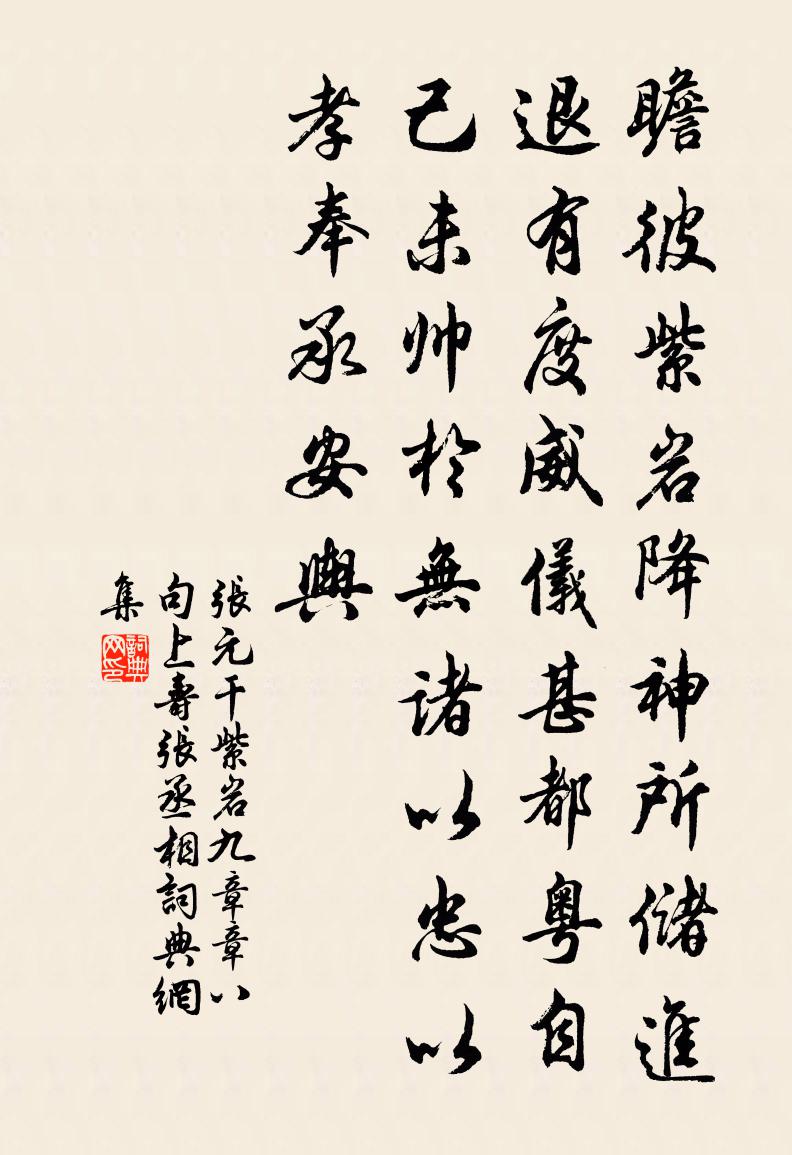 瞻彼紫岩降神所儲進
退有度威儀甚都粵自
己未帅於無諸以忠以
孝奉承安輿
張元干紫岩九章章八
句上壽張丞相詞典網
集
詞典
网印